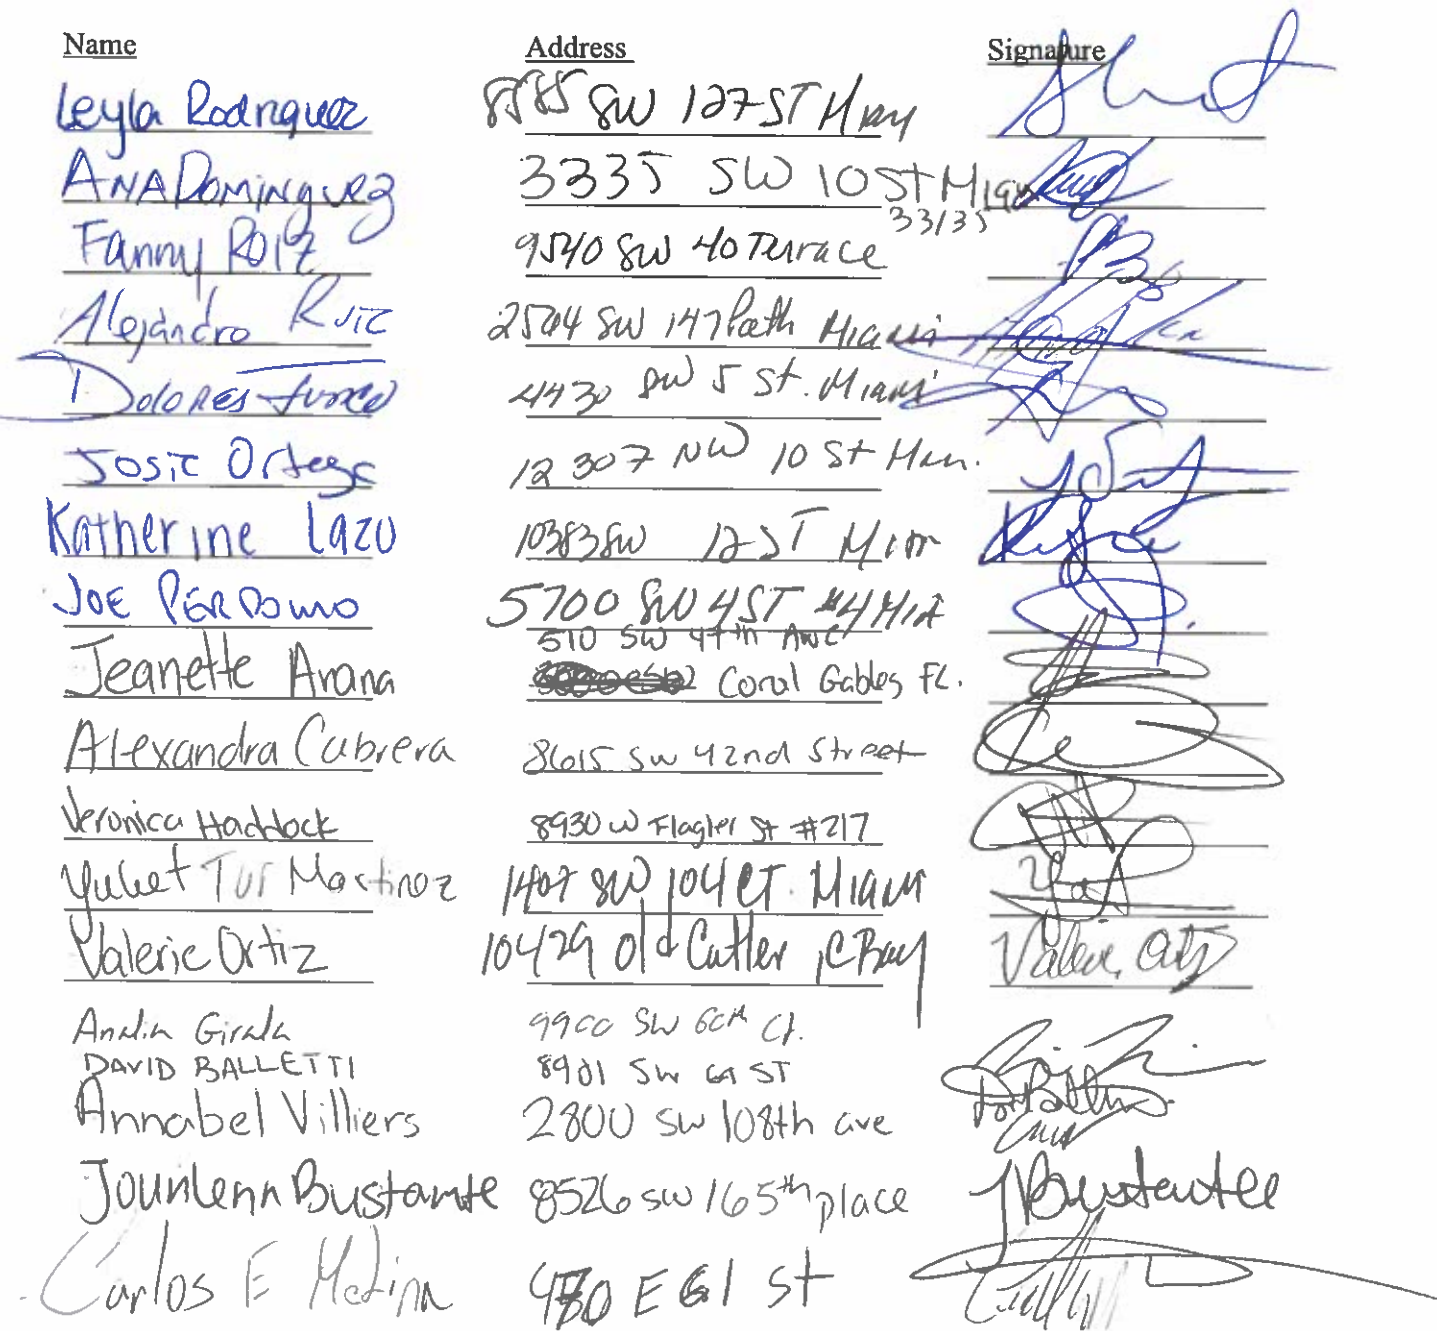 Name Address Signature
Leyla Rodriguez 8585 SW 127 ST
Ana Dominguez 3335 SW 10 St Miami
33135
Fanny Roiz 9540 SW 40 Terrace
Alejandro Ruiz 2564 SW 147 Path Miami
Dolores 4430 SW 5 St. Miami
Josie Ortega 12307 NW 10 St
Katherine Lazo 10383 SW 12 ST
JOE PERDOMO 5700 SW 4 ST #4
510 SW 47th Ave
Jeanette Arana Coral Gables FL.
Alexandra Cabrera 8615 SW 42nd Street
Veronica Haddock 8930 W Flagler St #217
Yuliet Tur Martinez 1407 SW 104 CT. Miami
Valerie Ortiz 10429 Old Cutler, C Bay Valerie Ortiz
Analia Girala 9900 SW 60th Ct.
DAVID BALLETTI 8901 SW 69 ST
Annabel Villiers 2800 SW 108th ave
Jounlenn Bustamte 8526 SW 165th place JBustantee
Carlos E Medina E 61 St